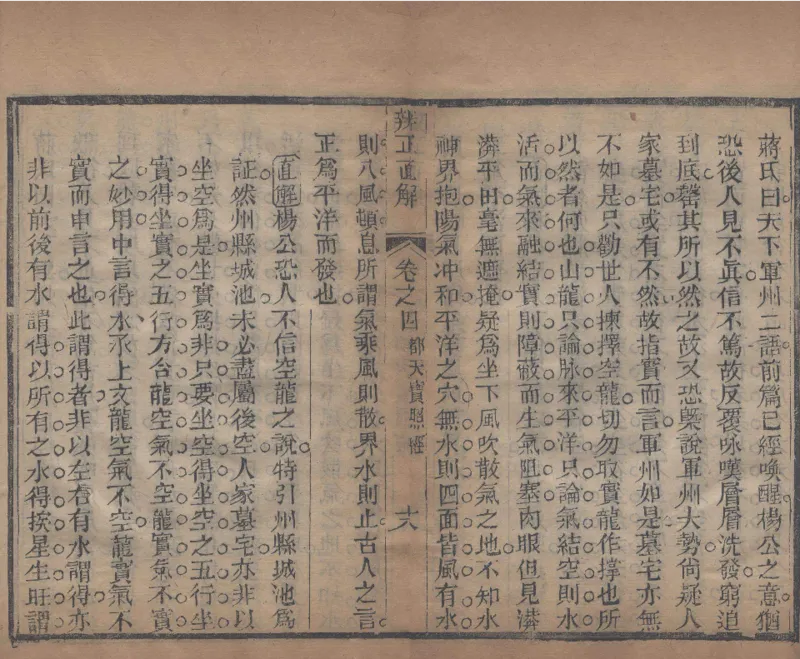 蔣氏曰天下軍州二語前篇已經喚醒楊公之意猶
恐後人見不眞信不篤故反覆咏嘆層層洗發窮追
到底罄其所以然之故又恐槩說軍州大勢尙疑人
家墓宅或有不然故指實而言軍州如是墓宅亦無
不如是只勸世人揀擇空龍切勿取實龍作撑也所
以然者何也山龍只論脉來平洋只論氣結空則水
活而氣來融結實則障蔽而生氣阻塞肉眼但見漭
漭平田毫無遮掩疑爲坐下風吹散氣之地不知水
神界抱陽氣冲和平洋之穴無水則四面皆風有水
辨正直解 卷之四 都天寶照經 十六
則八風頓息所謂氣乘風則散界水則止古人之言
正爲平洋而發也
直解楊公恐人不信空龍之說特引州縣城池爲
証然州縣城池未必盡屬後空人家墓宅亦非以
坐空爲是坐實爲非只要坐空得坐空之五行坐
實得坐實之五行方合龍空氣不空龍實氣不實
之妙用中言得水承上文龍空氣不空龍實氣不
實而申言之也此謂得者非以左右有水謂得亦
非以前後有水謂得以所有之水得挨星生旺謂